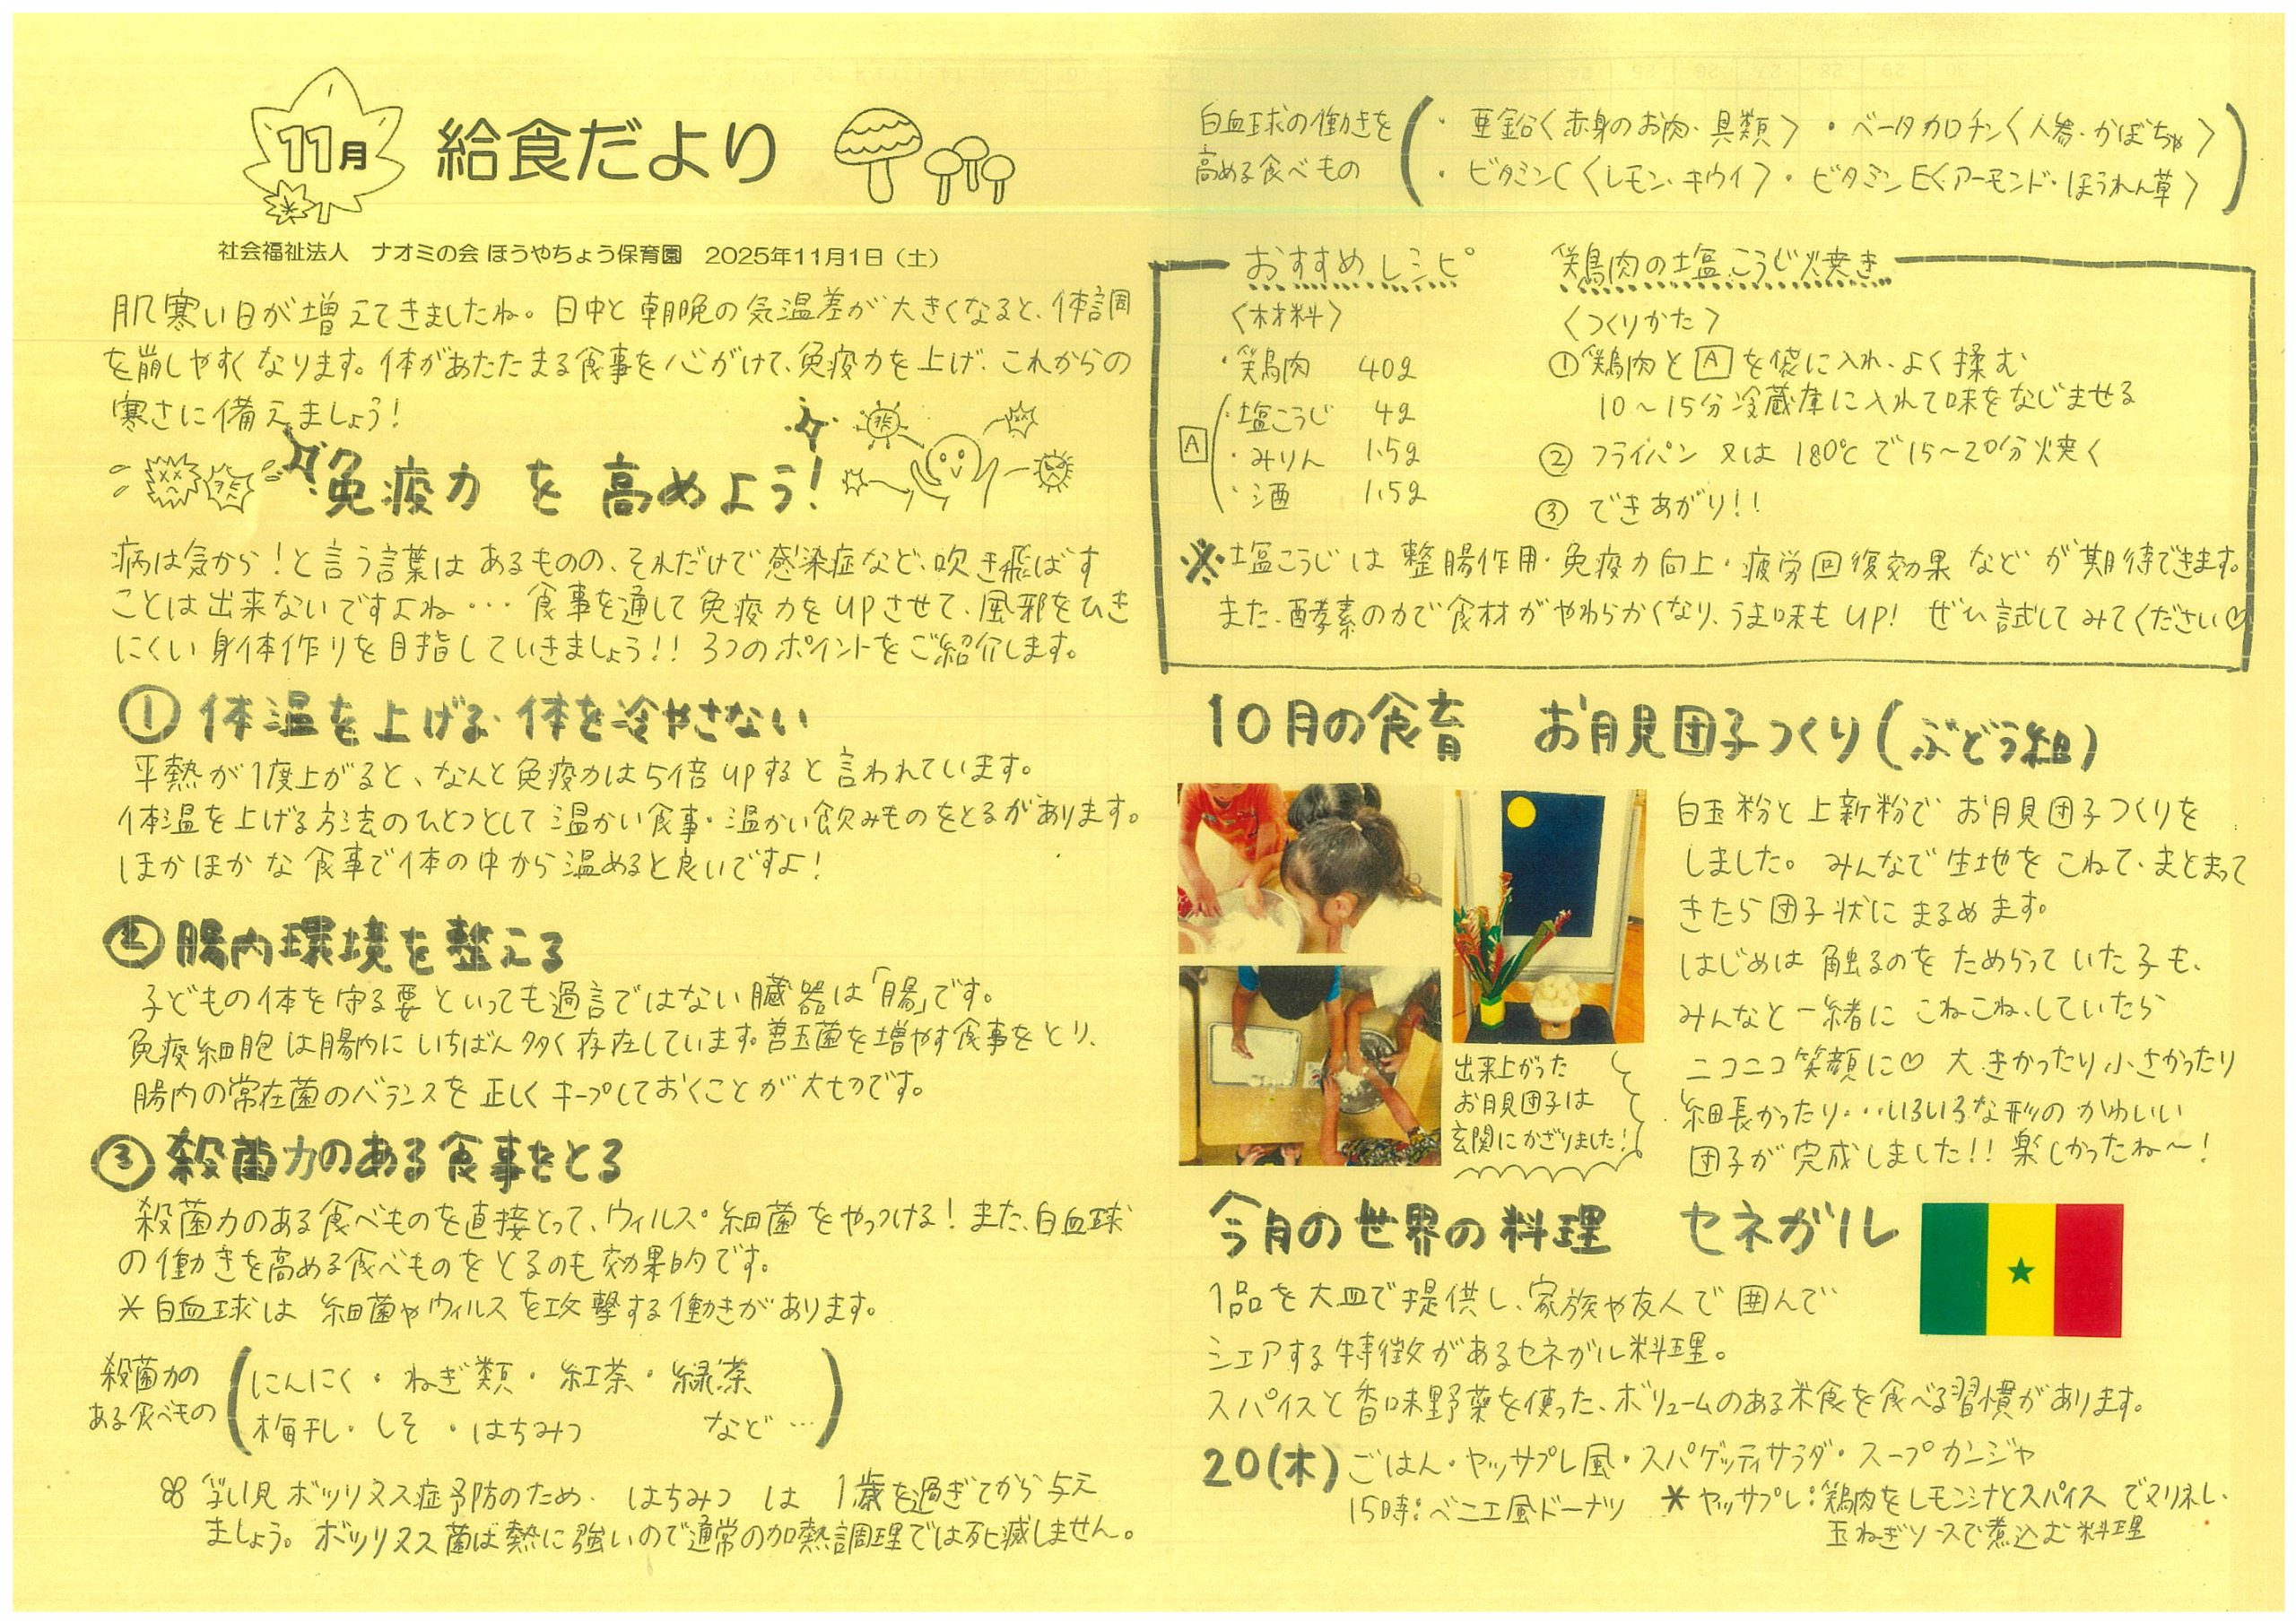 11月
給食だより
社会福祉法人 ナオミの会 ほうやちょう保育園 2025年11月1日（土）
肌寒い日が増えてきましたね。日中と朝晩の気温差が大きくなると、体調
を崩しやすくなります。体があたたまる食事を心がけて、免疫力を上げ、これからの
寒さに備えましょう！
免疫力を高めよう！
病は気から！と言う言葉はあるものの、それだけで感染症など、吹き飛ばす
ことは出来ないですよね・・・食事を通して免疫力をUPさせて、風邪をひき
にくい身体作りを目指していきましょう!! 3つのポイントをご紹介します。
① 体温を上げる・体を冷やさない
平熱が1度上がると、なんと免疫力は5倍UPすると言われています。
体温を上げる方法のひとつとして温かい食事・温かい飲みものをとるがあります。
ほかほかな食事で体の中から温めると良いですよ！
② 腸内環境を整える
子どもの体を守る要といっても過言ではない臓器は「腸」です。
免疫細胞は腸内にいちばん多く存在しています。善玉菌を増やす食事をとり、
腸内の常在菌のバランスを正しくキープしておくことが大切です。
③ 殺菌力のある食事をとる
殺菌力のある食べものを直接とって、ウィルス・細菌をやっつける！また、白血球
の働きを高める食べものをとるのも効果的です。
＊白血球は細菌やウィルスを攻撃する働きがあります。
殺菌力の
ある食べもの
にんにく・ねぎ類・紅茶・緑茶
梅干し・しそ・はちみつ など…
乳児ボツリヌス症予防のため、はちみつは1歳を過ぎてから与え
ましょう。ボツリヌス菌は熱に強いので通常の加熱調理では死滅しません。
白血球の働きを
高める食べもの
・亜鉛〈赤身のお肉・貝類〉・ベータカロチン〈人参・かぼちゃ〉
・ビタミンC〈レモン・キウイ〉・ビタミンE〈アーモンド・ほうれん草〉
おすすめレシピ 鶏肉の塩こうじ焼き
〈材料〉
・鶏肉 40g
A
・塩こうじ 4g
・みりん 1.5g
・酒 1.5g
〈つくりかた〉
①鶏肉とAを袋に入れ、よく揉む
10～15分冷蔵庫に入れて味をなじませる
② フライパン又は180℃で15～20分焼く
③ できあがり!!
※塩こうじは整腸作用・免疫力向上・疲労回復効果などが期待できます。
また、酵素の力で食材がやわらかくなり、うま味もUP! ぜひ試してみてください♡
10月の食育 お月見団子つくり(ぶどう組)
白玉粉と上新粉でお月見団子つくりを
しました。みんなで生地をこねて、まとまって
きたら団子状にまるめます。
はじめは触るのをためらっていた子も、
みんなと一緒にこねこねしていたら
ニコニコ笑顔に♡ 大きかったり小さかったり
細長かったり・・・いろいろな形のかわいい
団子が完成しました!! 楽しかったね～！
出来上がった
お月見団子は
玄関にかざりました！
今月の世界の料理 セネガル
1品を大皿で提供し、家族や友人で囲んで
シェアする特徴があるセネガル料理。
スパイスと香味野菜を使った、ボリュームのある米食を食べる習慣があります。
20(木) ごはん・ヤッサプレ風・スパゲッティサラダ・スープカンジャ
15時：ベニエ風ドーナツ
＊ヤッサプレ：鶏肉をレモン汁とスパイスでマリネし、
玉ねぎソースで煮込む料理